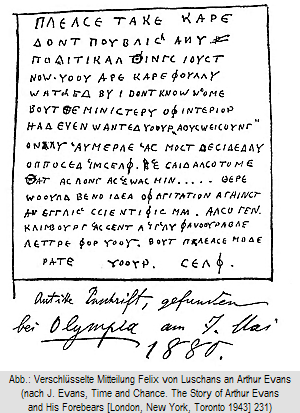 ΠΛΕΑCΕ ΤΑΚΕ ΚΑΡΕ
DΟΝΤ ΠΟΥΒΛΙCʰ ΑΝΥ
ΠΟΛΙΤΙΚΑΛ ΘΙΝΓC ΙΟΥCΤ
ΝΟW. ΥΟΥ ΑΡΕ ΚΑΡΕΦΟΥΛΛΥ
ΒΥ Ι DΟΝΤ ΚΝΟW
ΒΟΥΤ ΘΕ ΜΙΝΙCΤΕΡΥ ΟΦ ΙΝΤΕΡΙΟΡ
ΗΑD ΕVΕΝ WΑΝΤΕD ΥΟΥΡ „ΑΟΥCWΕΙCΟΥΝΓ"
"ΑΥΜΕΡΛΕ ʰΑC ΜΟCΤ DΕCΙDΕDΛΥ
ΟΠΠΟCΕD ʰΙΜCΕΛΦ. ΗΕ CΑΙD ΑΛCΟ ΤΟ ΜΕ
ΘΑΤ ΑC ΛΟΝΓ ΑC ʰΕ WΑC ΜΙΝ..... ΘΕΡΕ
WΟΟΥΛD ΒΕ ΝΟ ΙDΕΑ ΟΦ ΑΓΙΤΑΤΙΟΝ ΑΓΑΙΝCΤ
ΑΝ ΕΝΓΛΙCʰ CCΙΕΝΤΙΦΙC ΜΑΝ. ΑΛCΟ ΓΕΝ.
ΚΛΙΜΒΟΥΡΓ ʰΑC CΕΝΤ Α ʰΙΓʰΛΥ ΦΑVΟΥΡΑΒΛΕ
ΛΕΤΤΡΕ ΦΟΡ ΥΟΥ. ΒΟΥΤ ΠΛΕΑCΕ ΜΟDΕ
ΡΑΤΕ ΥΟΟΥΡ. CΕΛΦ.
Antike Inschrift, gefunden
bei Olympia am 7. Mai
1880.
Abb.: Verschlüsselte Mitteilung Felix von Luschans an Arthur Evans
(nach J. Evans, Time and Chance. The Story of Arthur Evans
and His Forebears [London, New York, Toronto 1943] 231)